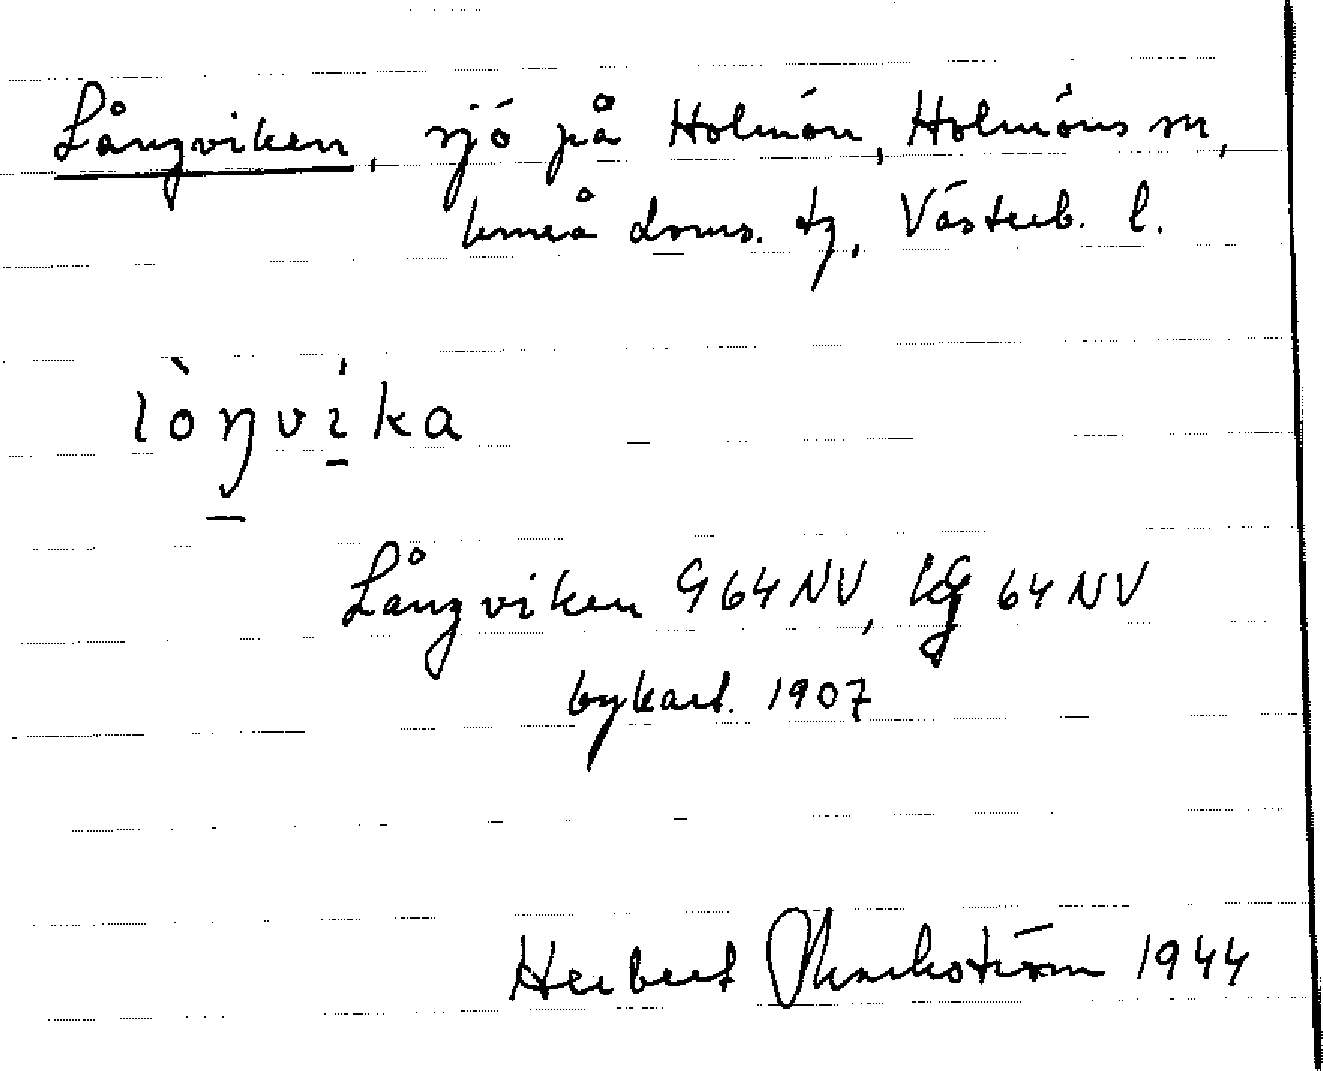 Långviken, sjö på Holmön, Holmöns sn,
Umeå doms. tg, Västerb. l.
lòŋvíka
Långviken G 64 NV, KG 64 NV
bykart. 1907
Herbert 1944